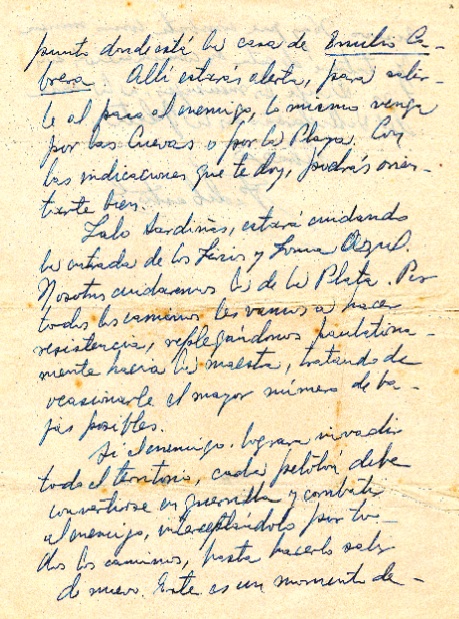 punto donde está la casa de Emilio Ca-
brera. Allí estarás alerta, para salir-
le al paso al enemigo, lo mismo venga
por las Cuevas o por la Playa. Con
las indicaciones que te doy, podrás orien-
tarte bien.
Lalo Sardiñas, estará cuidando
la entrada de los Lirios y Loma Azul.
Nosotros cuidaremos la de la Plata. Por
todos los caminos les vamos a hacer
resistencia, replegándonos paulatina-
mente hacia la maestra, tratando de
ocasionarle el mayor número de ba-
jas posibles.
Si el enemigo lograra invadir
todo el territorio, cada pelotón debe
convertirse en guerrilla y combatir
al enemigo, interceptándolo por to-
dos los caminos, hasta hacerlo salir
de nuevo. Este es un momento de-